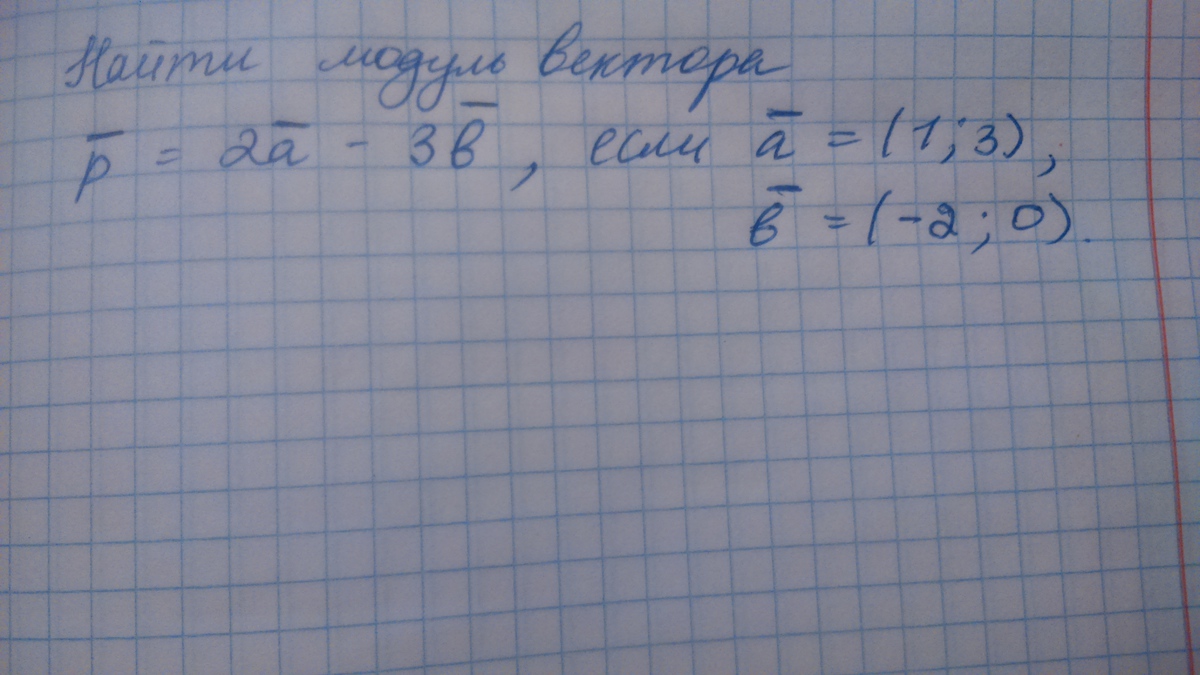 Найти модуль вектора
p̅ = 2a̅ - 3в̅, если a̅ = (1; 3),
в̅ = (-2; 0).